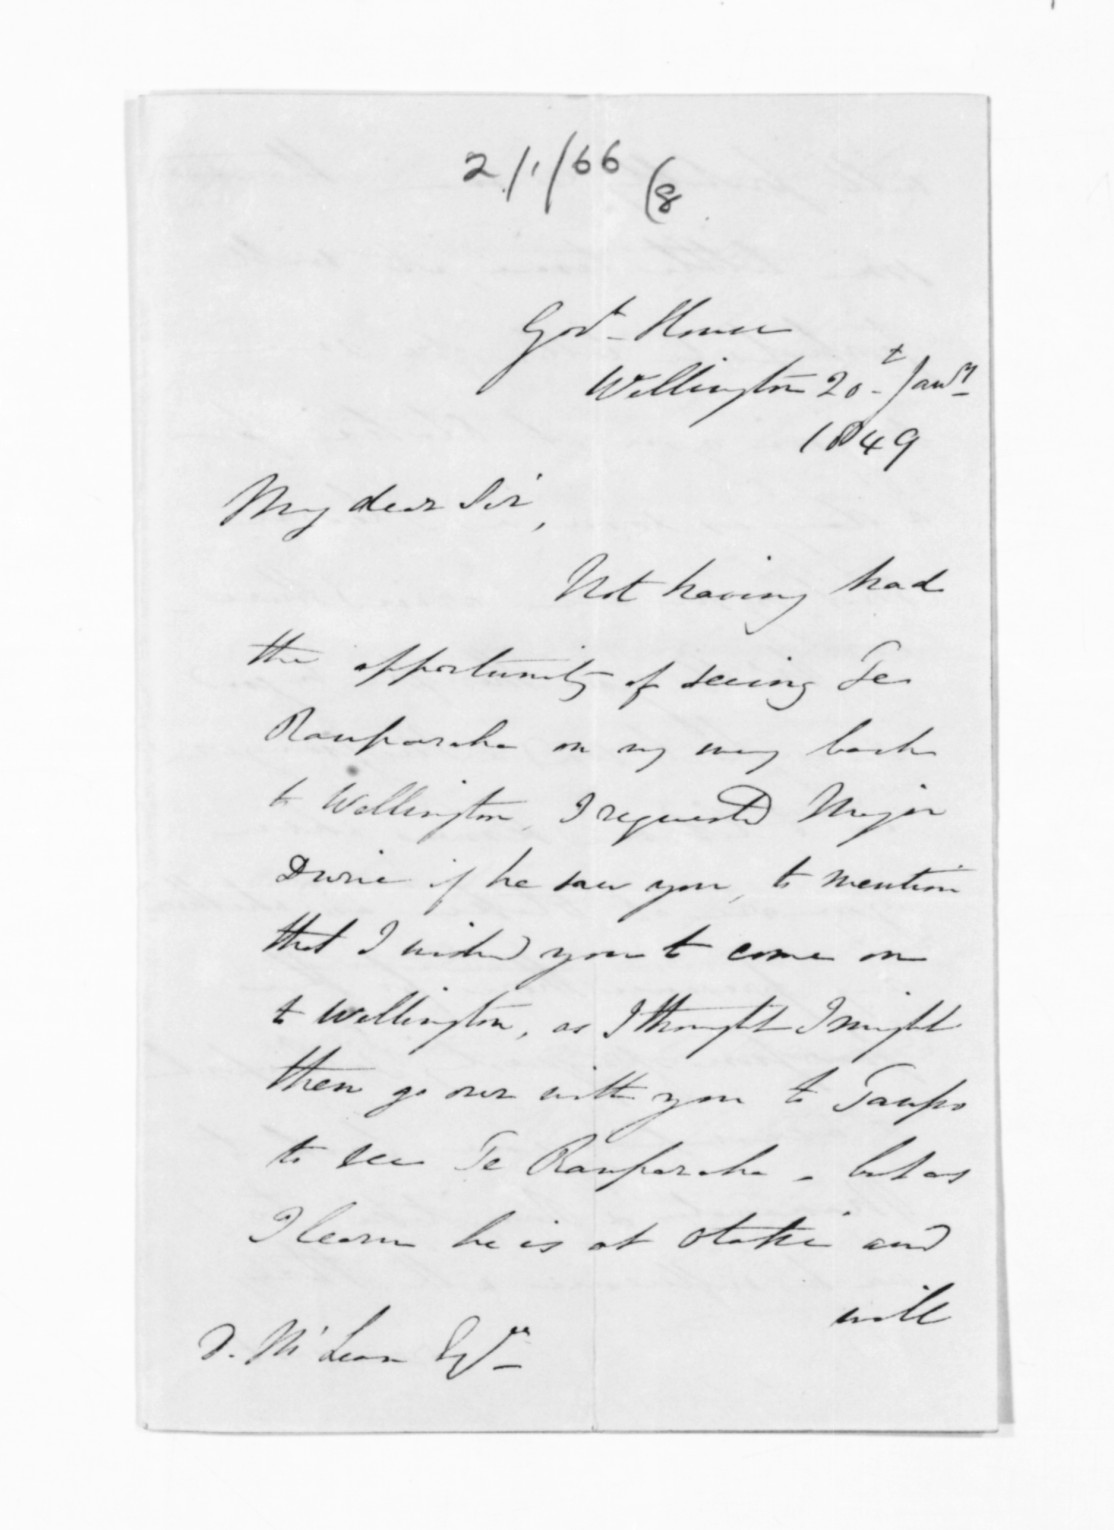 2/1/66 (8
Govt. House
Wellington 20t. Jany.
1849
My dear Sir,
Not having had
the opportunity of seeing Te
Rauparaha on my way back
to Wellington, I requested Major
Durie if he saw you, to mention
that I wished you to come on
to Wellington, as I thought I might
then go over with you to Taupo
to see Te Rauparaha - but as
I learn he is at Otaki and
will
D. McLean Esqre.